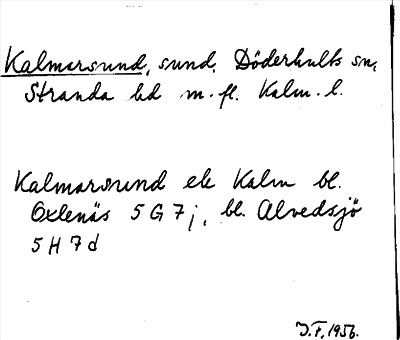 Kalmarsund, sund, Döderhults sn,
Stranda hd m.fl. Kalm. l.
Kalmarsund ek Kalm bl.
Oxlenäs 5 G 7 j, bl. Alvedsjö
5 H 7 d
J.F. 1956.